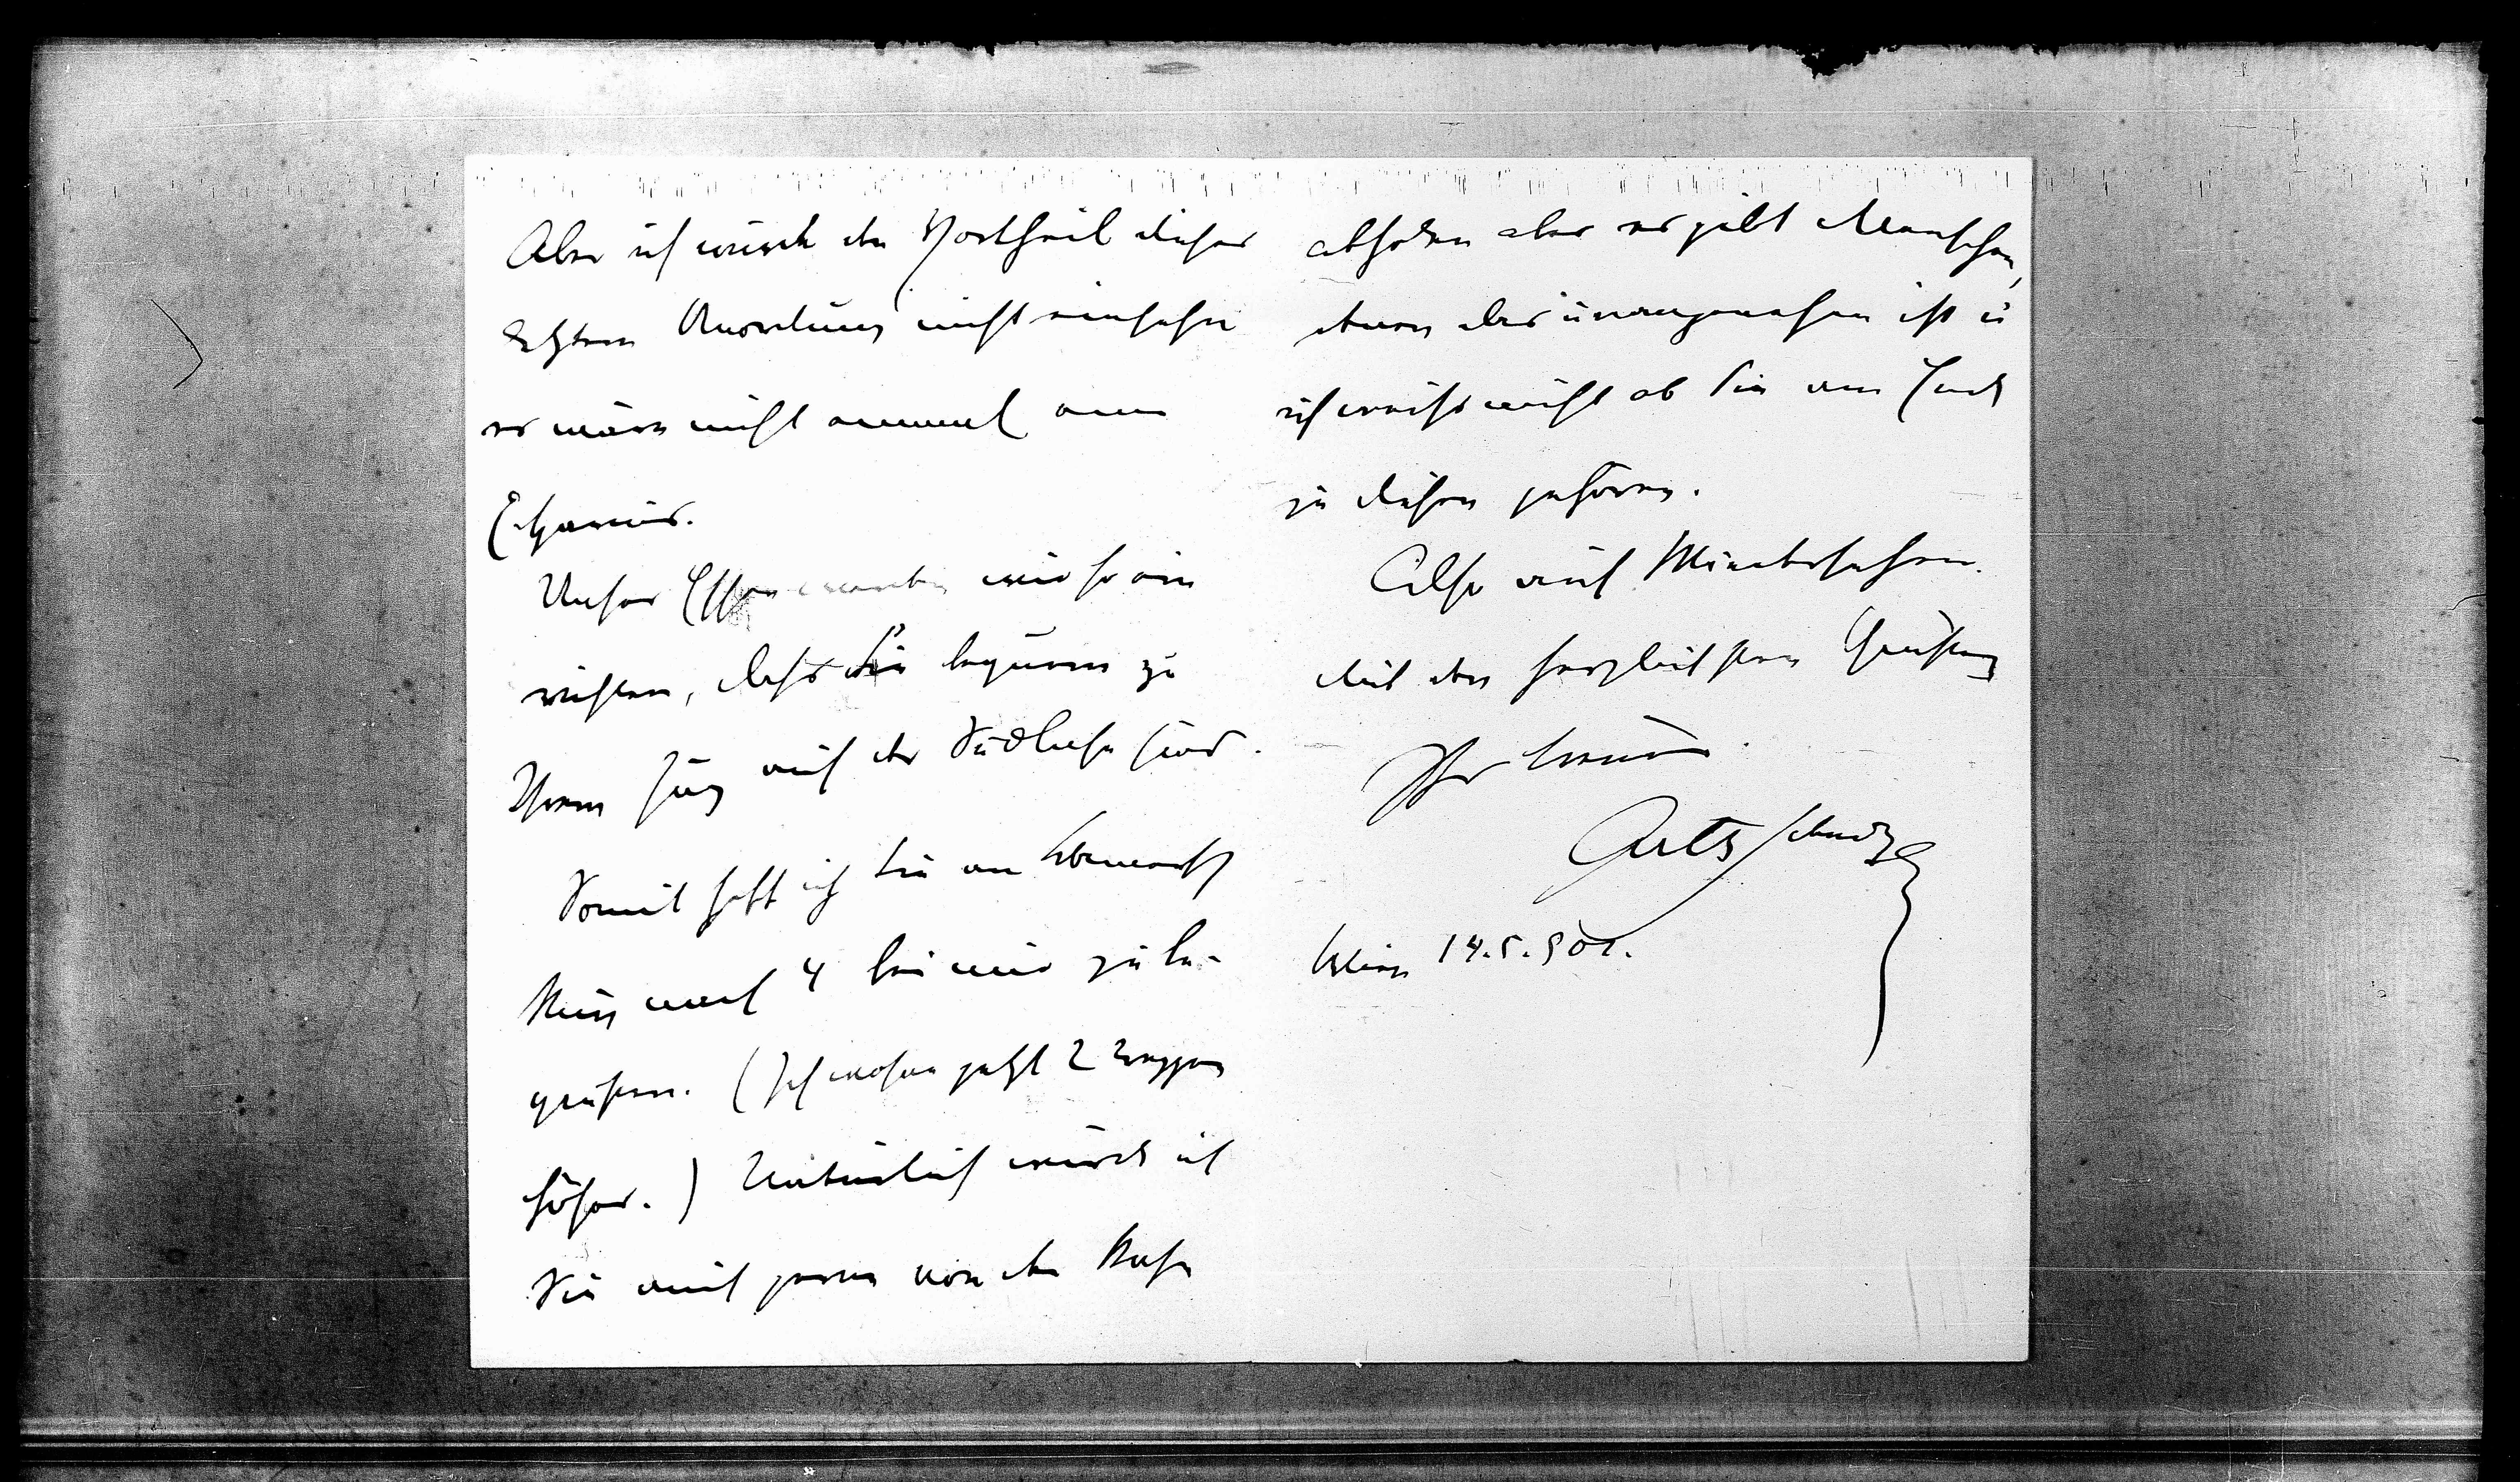 Aber ich würde den Vortheil dieser
letzteren Anordnung nicht einsehen
es wäre nicht einmal eine
Echarnir.
Unser Essen werden wir so ein
richten, dass Sie bequem zu
Ihrem Zug auf der Südbahn sind.
Somit hoffe ich Sie am Mittwoch
Nur nach 4 bei mir zu be-
grüßen. (Ich wohne jetzt 2 Treppen
höher.) Natürlich würde ich
Sie auch gerne von der Bahn
abholen aber es gibt Menschen,
denen das unangenehm ist u
ich weiß nicht ob Sie am Ende
zu diesen gehören.
Also auf Wiedersehen.
Mit den herzlichsten Grüßen
Ihr
Arth Schnitzler
Wien 14.5.901.